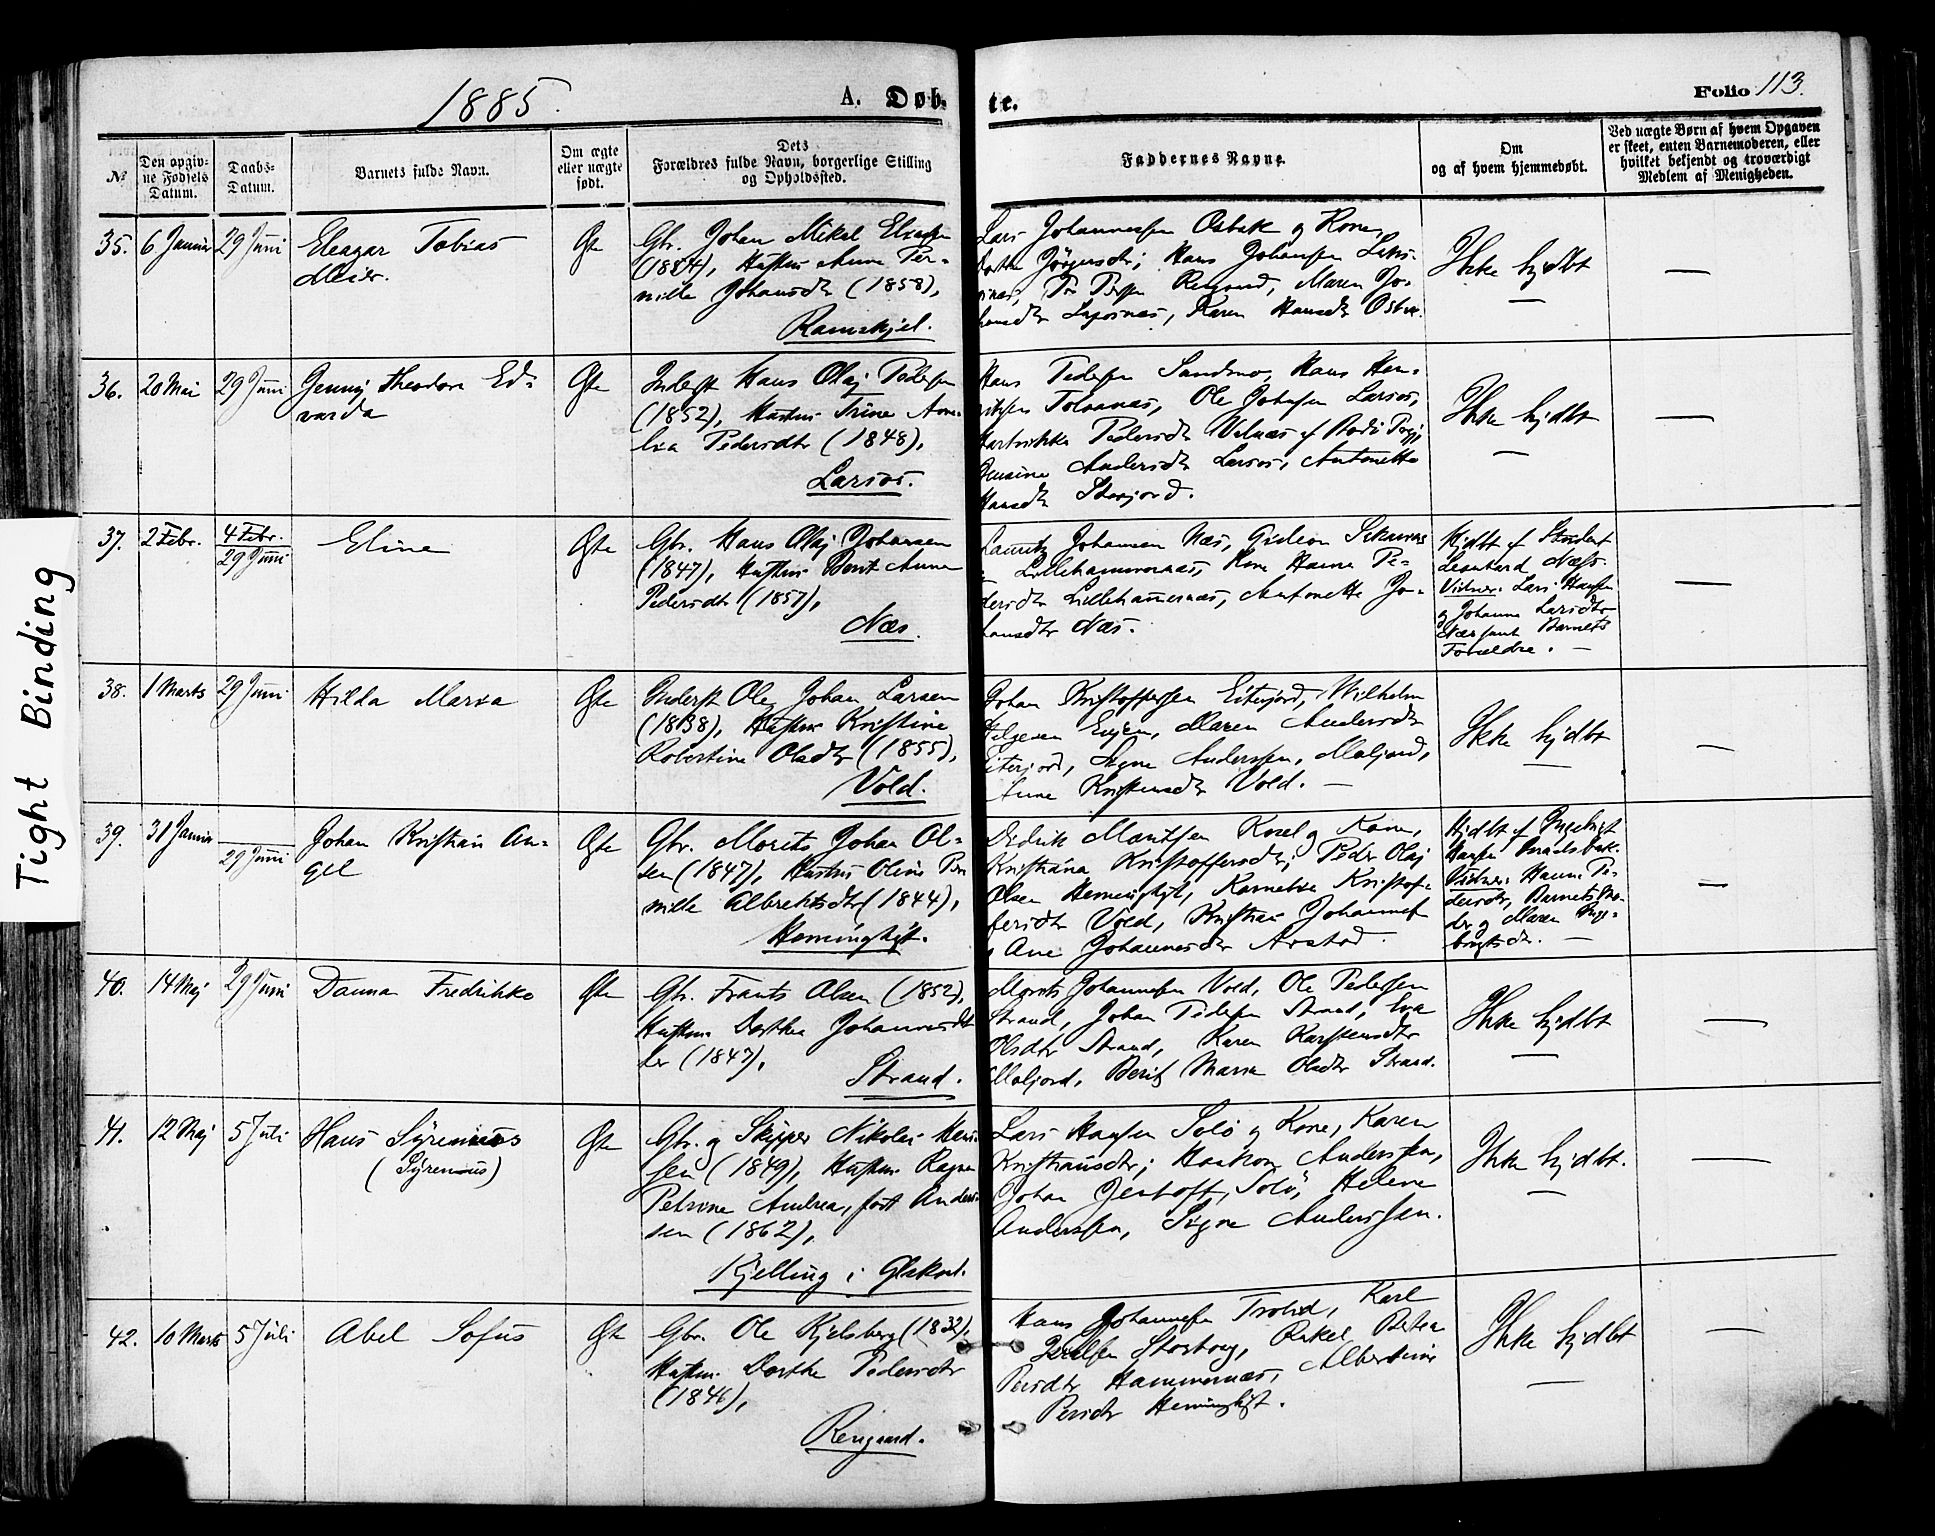 1885.
A. Døb-
te.
Folio 113.
Tight Binding
№
Den opgiv-
ne Fødsels
Datum.
Daabs-
Datum.
Barnets fulde Navn.
Om ægte
eller uægte
født.
Dets
Forældres fulde Navn, borgerlige Stilling
og Opholdssted.
Faddernes Navne.
Om
og af hvem hjemmedøbt.
Ved uægte Børn af hvem Opgaven
er skeet, enten Barnemoderen, eller
hvilket bekjendt og troværdigt
Medlem af Menigheden.
35. 6 Januar 29 Juni Eleazar Tobias
Meier.
Gte
Gbr. Johan Mikal
(1854), Hustru Anne Per-
nille Johansdtr (1858),
Ramskjel.
Lars Johannessen Osbak og Kone
Jörgensdtr; Hans Johansen
Maren Jo-
hansdtr Karen Hansdtr
Ikke hjdbt
36. 20 Mai 29 Juni Jenny Theodora Ed-
varda
Gte
Inderst Hans Olaj Pedersen
(1852), Hustru Trine
Pedersdtr (1848),
Larsos.
Hans Pedersen Sandmo, Hans Hen-
riksen Tolvanæs, Ole Johnsen Larsos,
Hartvikka Pedersdtr
Andersdtr Larsos, Antonette
Hansdtr
Ikke hjdbt
37. 2 Febr. 4 Febr.
29 Juni
Eline
Gte
Gbr. Hans Olaj Johansen
(1847), Hustru Berit Anna
Pedersdtr (1857),
Næs.
Lauritz Johansen Næs, Gideon
Lillehammernæs, Kone Hanna Pe-
dersdtr Lillehammernæs, Antonette Jo-
hansdtr Næs.
Hjdbt af Student
Leonhard Næss.
Vidner: Lars Hansen
og Johanna Larsdtr
Næs samt Barnets
Forældre.
38. 1 Marts 29 Juni Hilda Maria
Gte
Inderst Ole Johan Larsen
(1838), Hustru Kristine
Robertine Olsdtr (1855),
Vold.
Johan Kristoffersen Eiterjord, Wilhelm
Helgesen Evjen, Maren Andersdtr
Eiterjord, Signe Anderssen, Moljord,
Anne Kristensdtr Vold.
Ikke hjdbt
39. 31 Januar
29 Juni
Johan Kristian An-
gel
Gte
Gbr. Morits Johan Ol-
sen (1847), Hustru Oline Per
nille Albrektsdtr (1844),
Hemingtyt.
Didrik Moritsen og Kone,
Kristiana Kristoffersdtr; Peder Olaj
Olsen Hemingtyt, Kornelia Kristof-
fersdtr Vold, Kristian Johannes
Ane Johannesdtr Arstad.
Hjdbt af Ingebrigt
Hansen
Vidner: Hanna Pe-
dersdtr, Barnets Mo-
der og Maren Inge-
brigtsdtr.
40. 14 Maj 29 Juni Danna Fredrikke
Gte
Gbr. Frants Olsen (1852),
Hustru Dorthea Johannesdat
ter (1847),
Strand.
Morits Johannesen Vold, Ole Pedersen
Strand, Johan Pedersen Strand, Eva
Olsdtr Strand, Karen Karstensdtr
Moljord, Berit Maria Olsdtr Strand.
Ikke hjdbt
41. 12 Maj 5 Juli Hans Syrenius
(Syrenius)
Gte
Gbr. og Skipper Nikolai Han-
sen (1849), Hustru Ragna
Petrine Andrea, født Ander-
sen (1862),
Kjelling i Gildeskaal.
Lars Hansen Solö og Kone, Karen
Kristiansdtr; Haakon Anderssen,
Johan Jentoft, Solö, Helene
Anderssen, Signe Anderssen.
Ikke hjdbt.
42. 10 Marts 5 Juli Abel Sofus
Gte
Gbr. Ole Kjelsberg (1832),
Hustru Dorthe Pedersdtr
(1846),
Rengaard.
Hans Johannesen Karl
Storborg, Rakel
Persdtr Hammernæs, Albertine
Persdtr Hemingtyt.
Ikke hjdbt